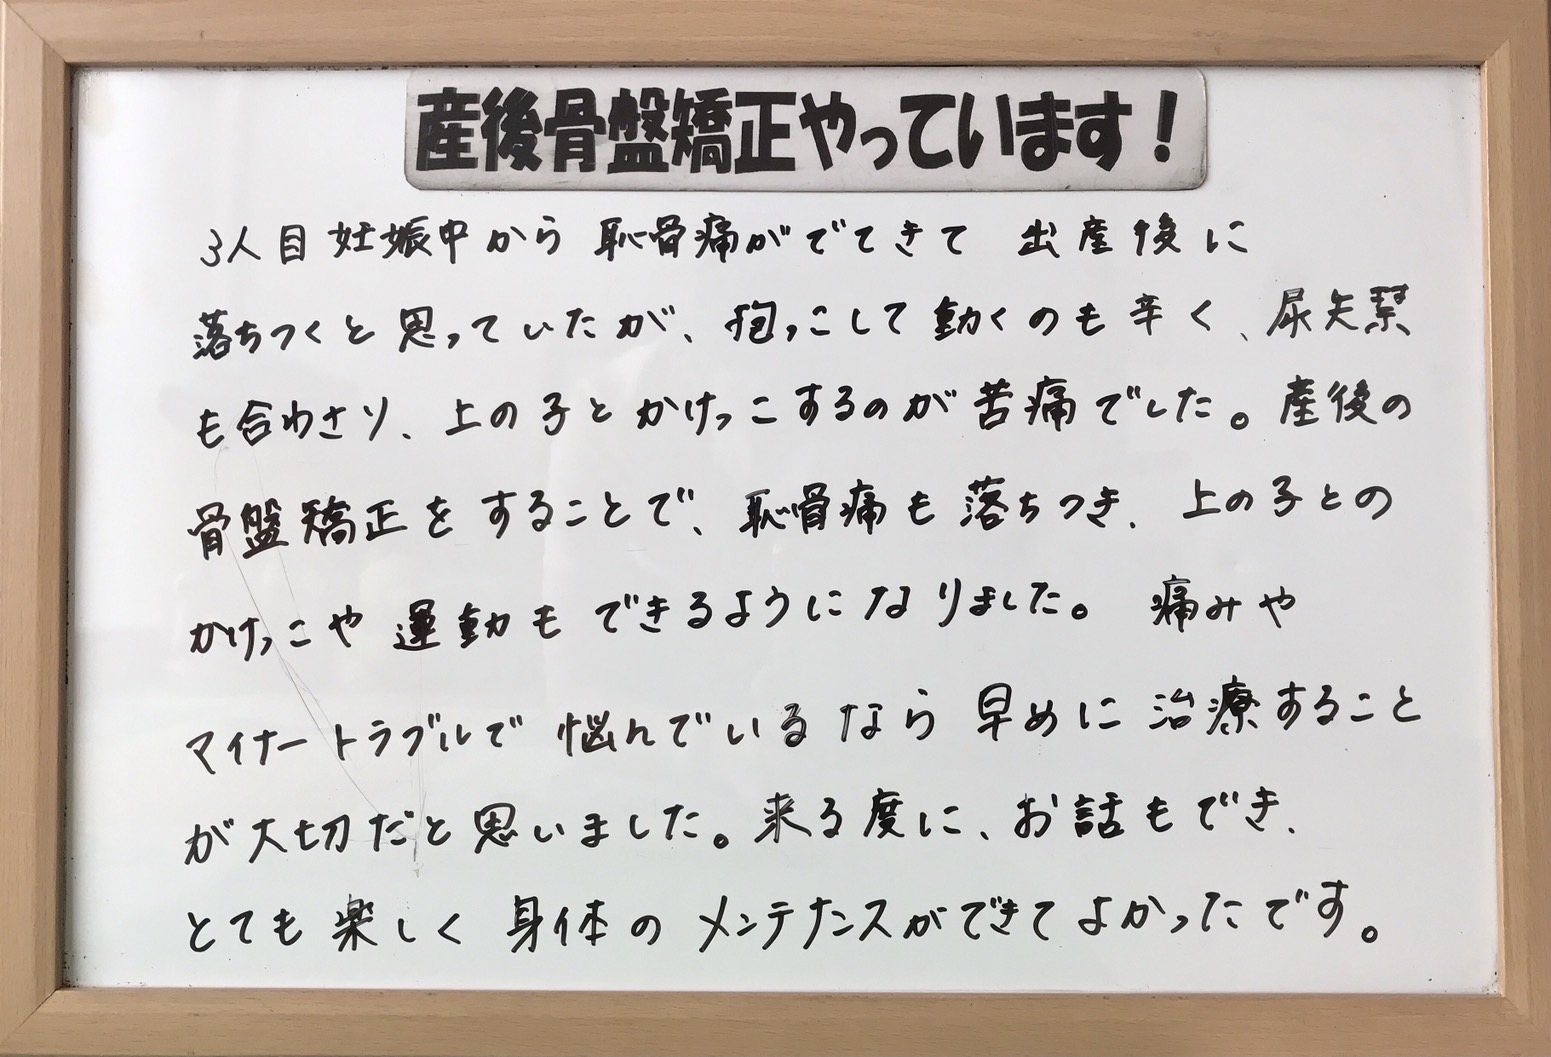 産後骨盤矯正やっています！
3人目妊娠中から 恥骨痛がでてきて 出産後に
落ちつくと思っていたが、抱っこして動くのも辛く、尿失禁
も合わさり、上の子とかけっこするのが苦痛でした。産後の
骨盤矯正をすることで、恥骨痛も落ちつき、上の子との
かけっこや運動もできるようになりました。 痛みや
マイナートラブルで悩んでいるなら早めに治療すること
が大切だと思いました。来る度に、お話もでき、
とても楽しく身体のメンテナンスができてよかったです。